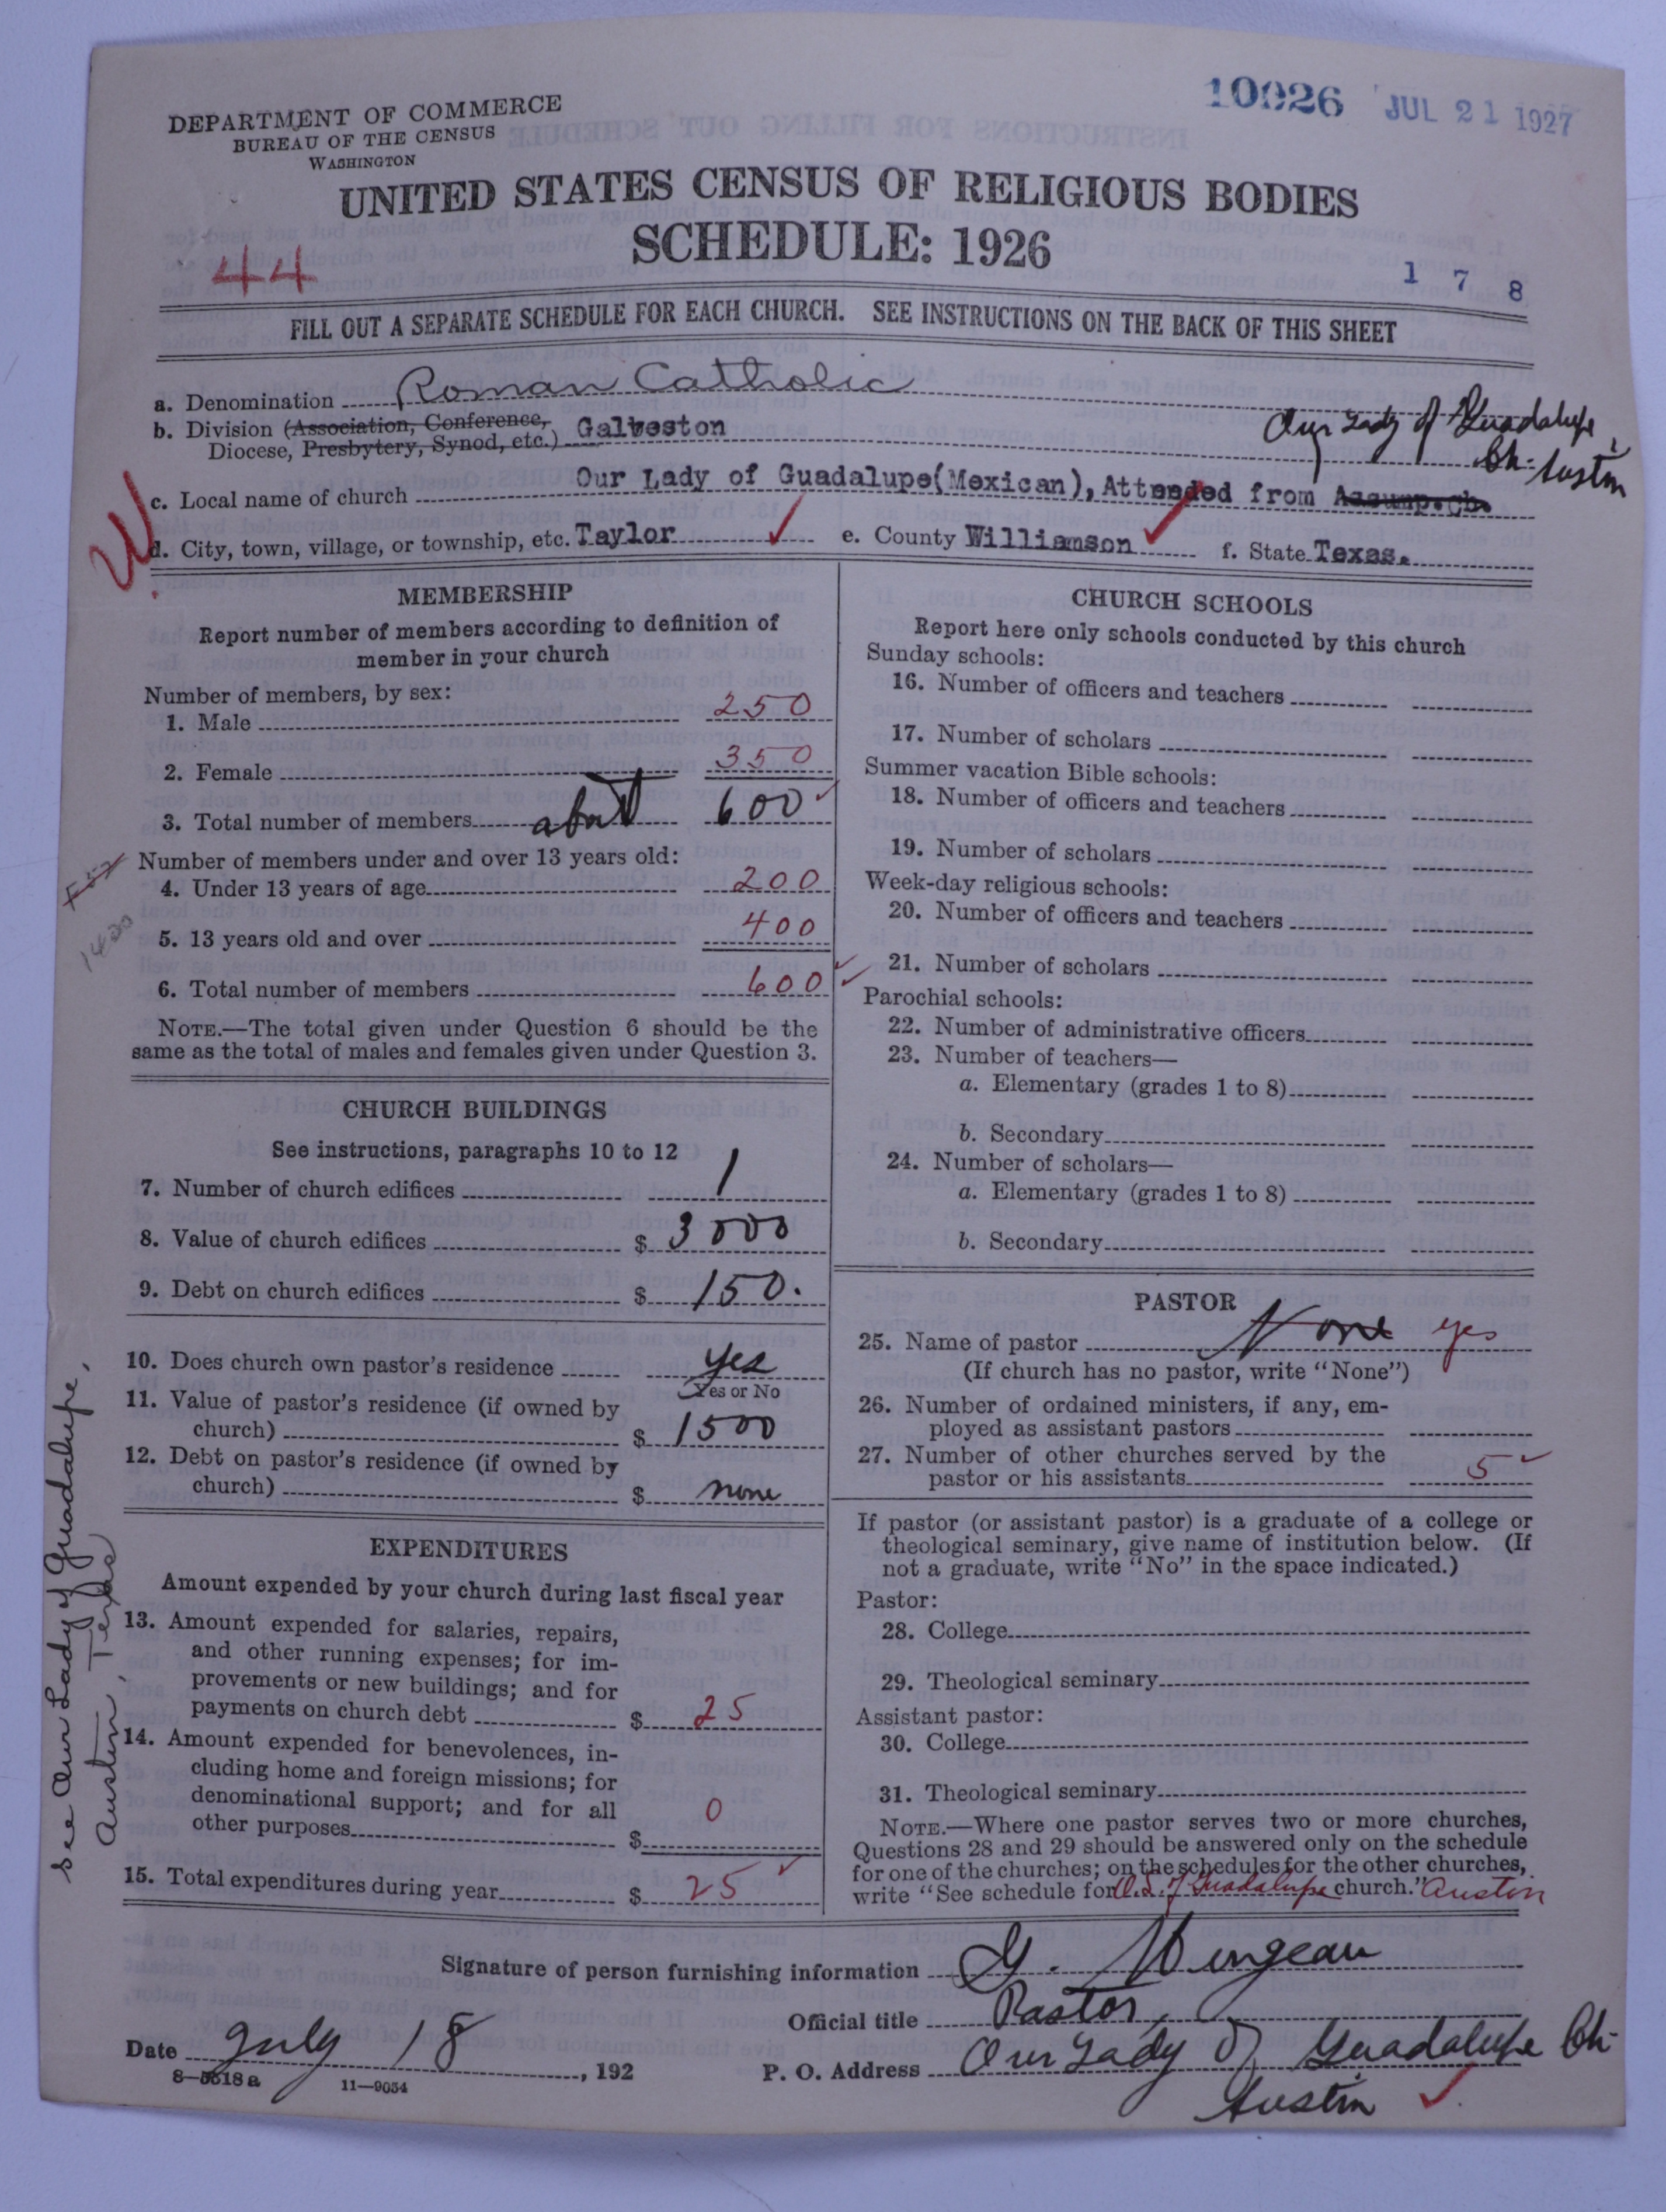 10926 JUL 21 1927
DEPARTMENT OF COMMERCE
BUREAU OF THE CENSUS
WASHINGTON
UNITED STATES CENSUS OF RELIGIOUS BODIES
SCHEDULE: 1926
44
1 7 8
FILL OUT A SEPARATE SCHEDULE FOR EACH CHURCH. SEE INSTRUCTIONS ON THE BACK OF THIS SHEET
a. Denomination Roman Catholic
b. Division (Association, Conference,
Diocese, Presbytery, Synod, etc.) Galveston
Our Lady of Guadalupe
Ch. Austin
c. Local name of church Our Lady of Guadalupe(Mexican), Attended from Assump.Ch.
d. City, town, village, or township, etc. Taylor e. County Williamson f. State Texas.
MEMBERSHIP
Report number of members according to definition of
member in your church
Number of members, by sex:
1. Male 250
2. Female 350
3. Total number of members about 600
Number of members under and over 13 years old:
4. Under 13 years of age 200
5. 13 years old and over 400
6. Total number of members 600
NOTE.—The total given under Question 6 should be the
same as the total of males and females given under Question 3.
CHURCH BUILDINGS
See instructions, paragraphs 10 to 12
7. Number of church edifices 1
8. Value of church edifices $ 3000
9. Debt on church edifices $ 150.
10. Does church own pastor's residence yes
Yes or No
11. Value of pastor's residence (if owned by
church) $ 1500
12. Debt on pastor's residence (if owned by
church) $ none
EXPENDITURES
Amount expended by your church during last fiscal year
13. Amount expended for salaries, repairs,
and other running expenses; for im-
provements or new buildings; and for
payments on church debt $ 25
14. Amount expended for benevolences, in-
cluding home and foreign missions; for
denominational support; and for all
other purposes $ 0
15. Total expenditures during year $ 25
see Our Lady of Guadalupe,
Austin, Texas
CHURCH SCHOOLS
Report here only schools conducted by this church
Sunday schools:
16. Number of officers and teachers
17. Number of scholars
Summer vacation Bible schools:
18. Number of officers and teachers
19. Number of scholars
Week-day religious schools:
20. Number of officers and teachers
21. Number of scholars
Parochial schools:
22. Number of administrative officers
23. Number of teachers—
a. Elementary (grades 1 to 8)
b. Secondary
24. Number of scholars—
a. Elementary (grades 1 to 8)
b. Secondary
PASTOR
25. Name of pastor None yes
(If church has no pastor, write "None")
26. Number of ordained ministers, if any, em-
ployed as assistant pastors
27. Number of other churches served by the
pastor or his assistants 5
If pastor (or assistant pastor) is a graduate of a college or
theological seminary, give name of institution below. (If
not a graduate, write "No" in the space indicated.)
Pastor:
28. College
29. Theological seminary
Assistant pastor:
30. College
31. Theological seminary
NOTE.—Where one pastor serves two or more churches,
Questions 28 and 29 should be answered only on the schedule
for one of the churches; on the schedules for the other churches,
write "See schedule for O.L. of Guadalupe church." Austin
Signature of person furnishing information G. Mungeau
Official title Pastor,
Date July 18, 192 P. O. Address Our Lady of Guadalupe Ch.
Austin
8—5518a 11—9054